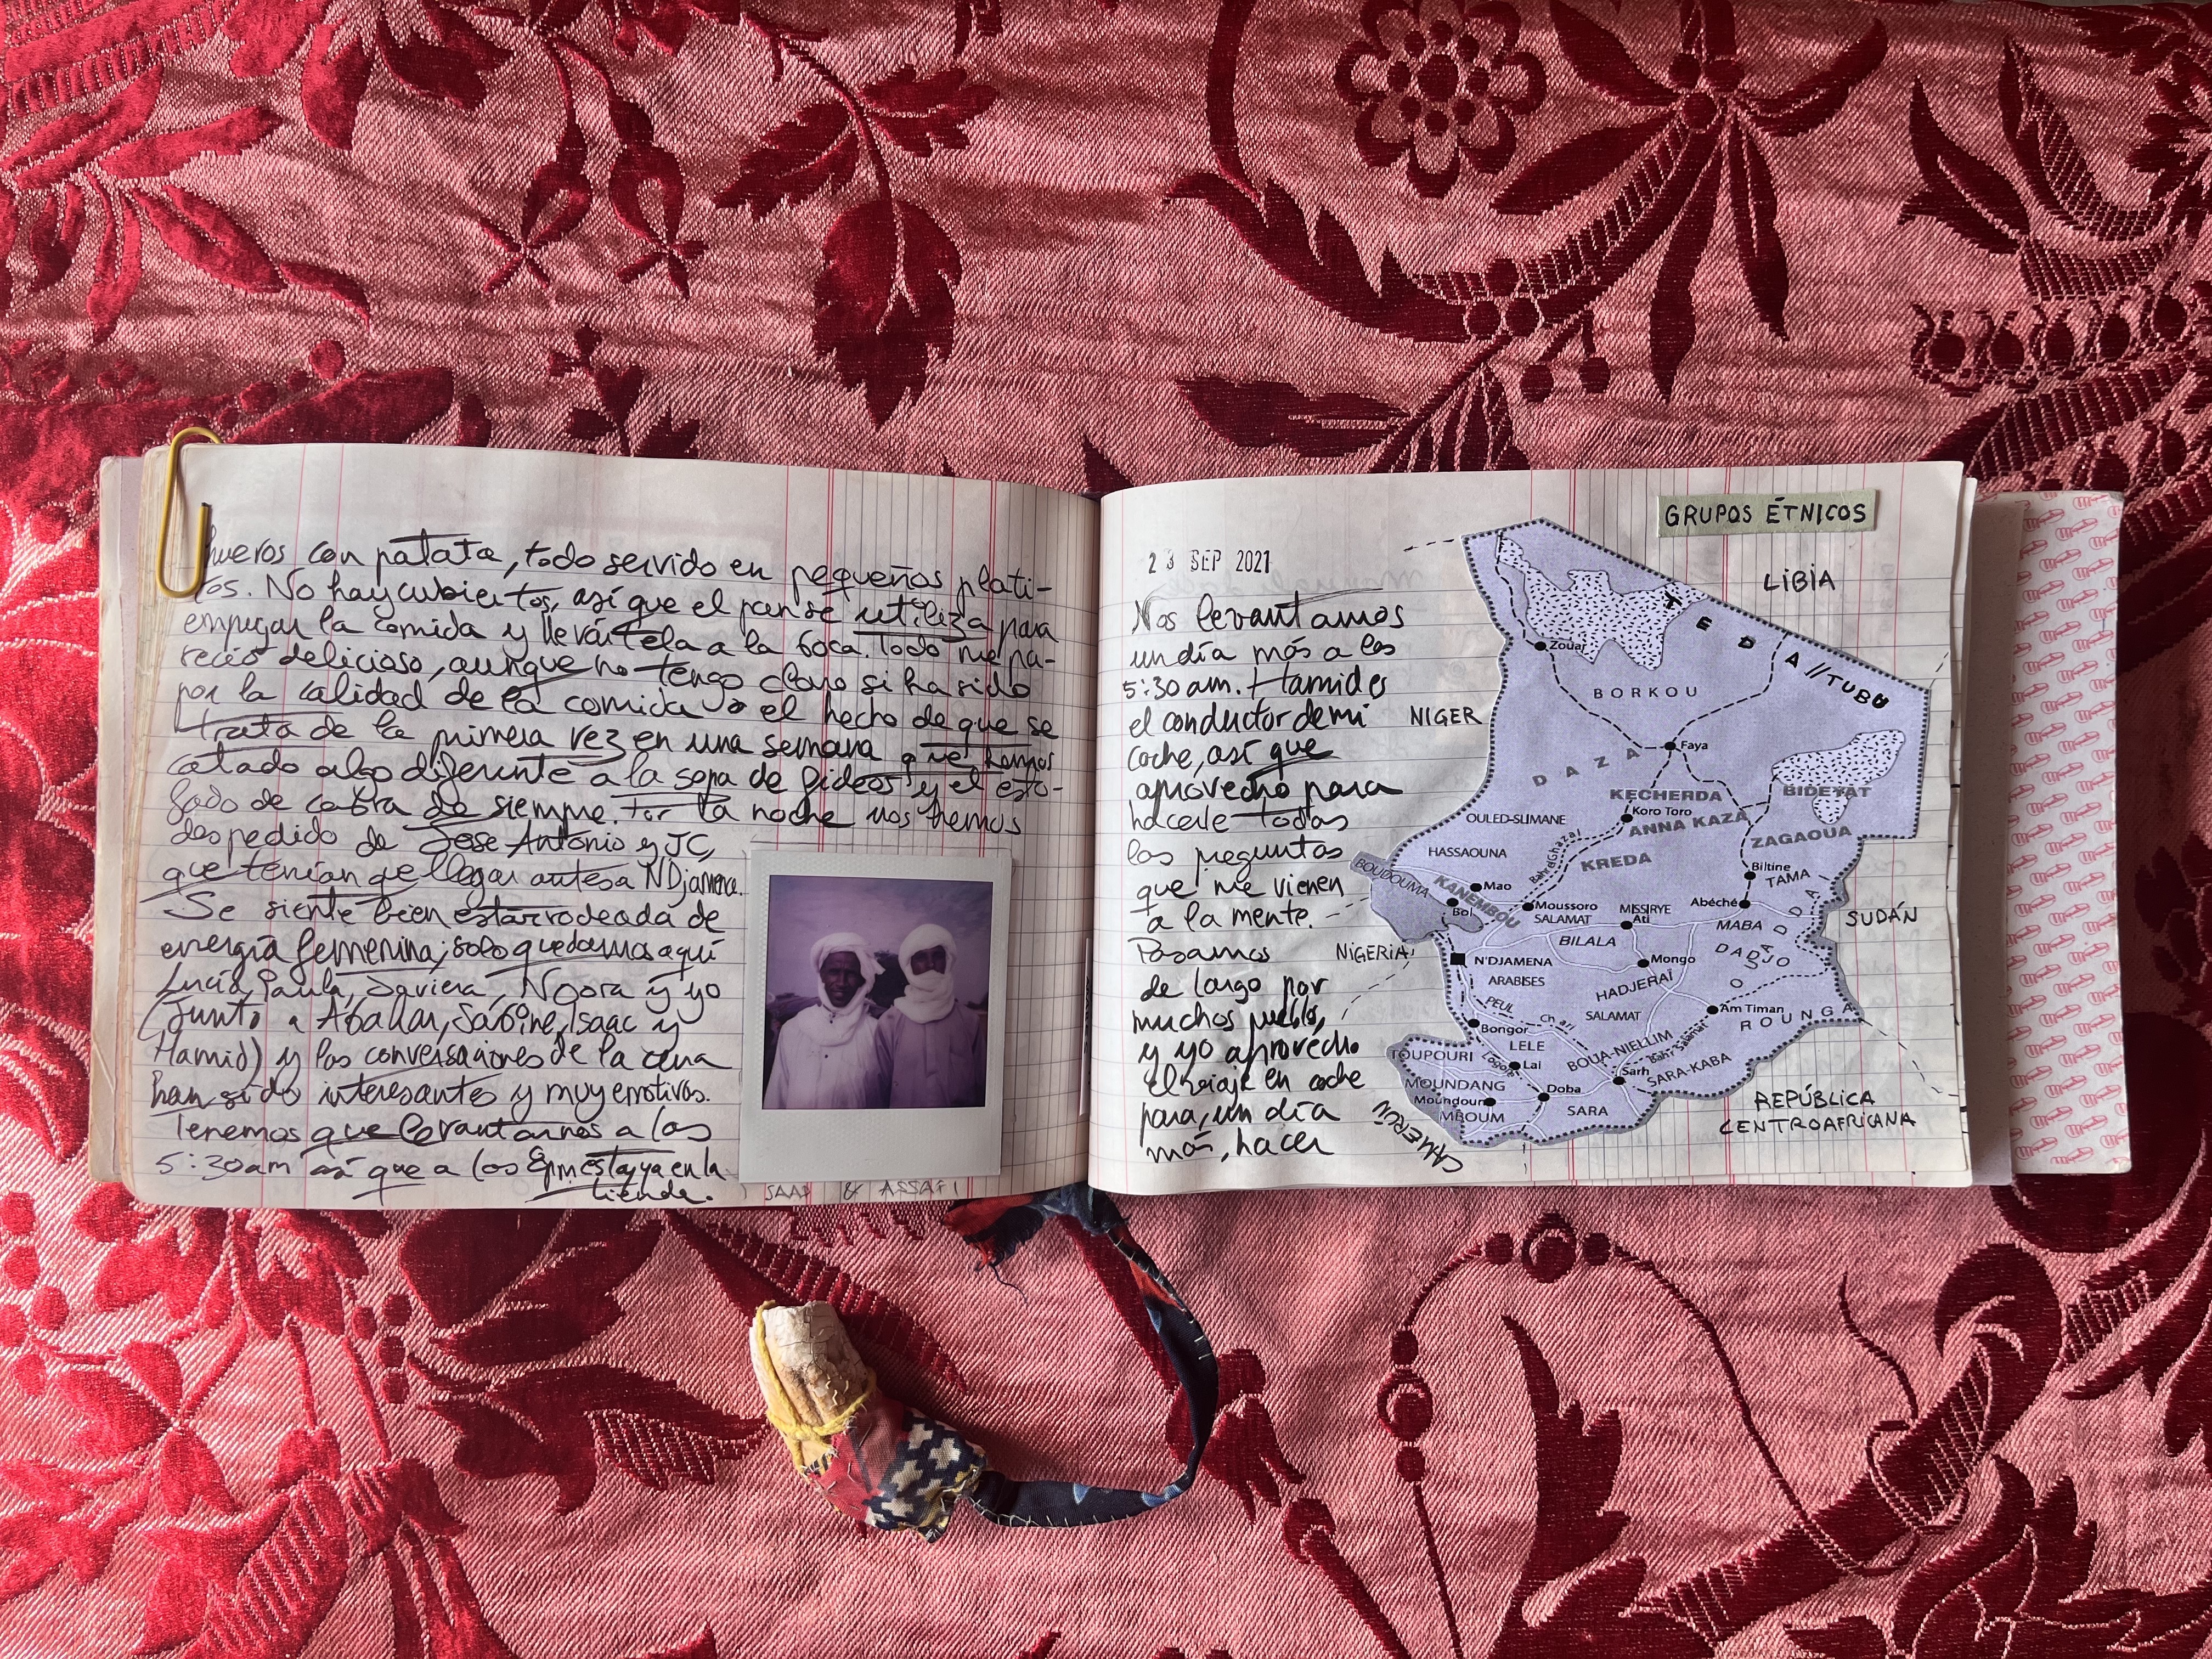 huevos con patata, todo servido en pequeños plati-
tos. No hay cubiertos, así que el pan se utiliza para
empujar la comida y llevártela a la boca. Todo me pa-
reció delicioso, aunque no tengo claro si ha sido
por la calidad de la comida o el hecho de que se
trata de la primera vez en una semana que hemos
catado algo diferente a la sopa de fideos y el esto-
fado de cabra de siempre. Por la noche nos hemos
despedido de Jose Antonio y JC,
que tenían que llegar antes a NDjamena.
Se siente bien estar rodeada de
energía femenina; solo quedamos aquí
Lucía, Paula, Javiera, Noora y yo
(junto a Abakar, Sabine, Isaac y
Hamid) y las conversaciones de la cena
han sido interesantes y muy emotivas.
Tenemos que levantarnos a las
5:30am así que a las 8pm estoy ya en la
tienda.
SAAD & ASSAFI
23 SEP 2021
Nos levantamos
un día más a las
5:30 am. Hamid es
el conductor de mi
coche, así que
aprovecho para
hacerle todas
las preguntas
que me vienen
a la mente.
Pasamos
de largo por
muchos pueblos,
y yo aprovecho
el viaje en coche
para, un día
más, hacer
GRUPOS ÉTNICOS
LIBIA
TEDA//TUBU
Zouar
BORKOU
NIGER
Faya
DAZA
BIDEYAT
KECHERDA
Koro Toro
ANNA KAZA
OULED-SLIMANE
ZAGAOUA
HASSAOUNA
Bahr el Ghazal
KREDA
BOUDOUMA
KANEMBOU
Mao
Biltine
TAMA
Bol
Moussoro
SALAMAT
MISSIRYE
Ati
Abéché
MABA
SUDÁN
BILALA
DADJO
OUADDAÏ
NIGERIA
N'DJAMENA
Mongo
ARABISES
HADJERAÏ
PEUL
Chari
SALAMAT
Am Timan
ROUNGA
Bongor
LELE
BOUA-NIELLIM
Bahr Salamat
TOUPOURI
Logone
Lai
Sarh
SARA-KABA
MOUNDANG
Doba
Moundou
SARA
MBOUM
CAMERÚN
REPÚBLICA
CENTROAFRICANA